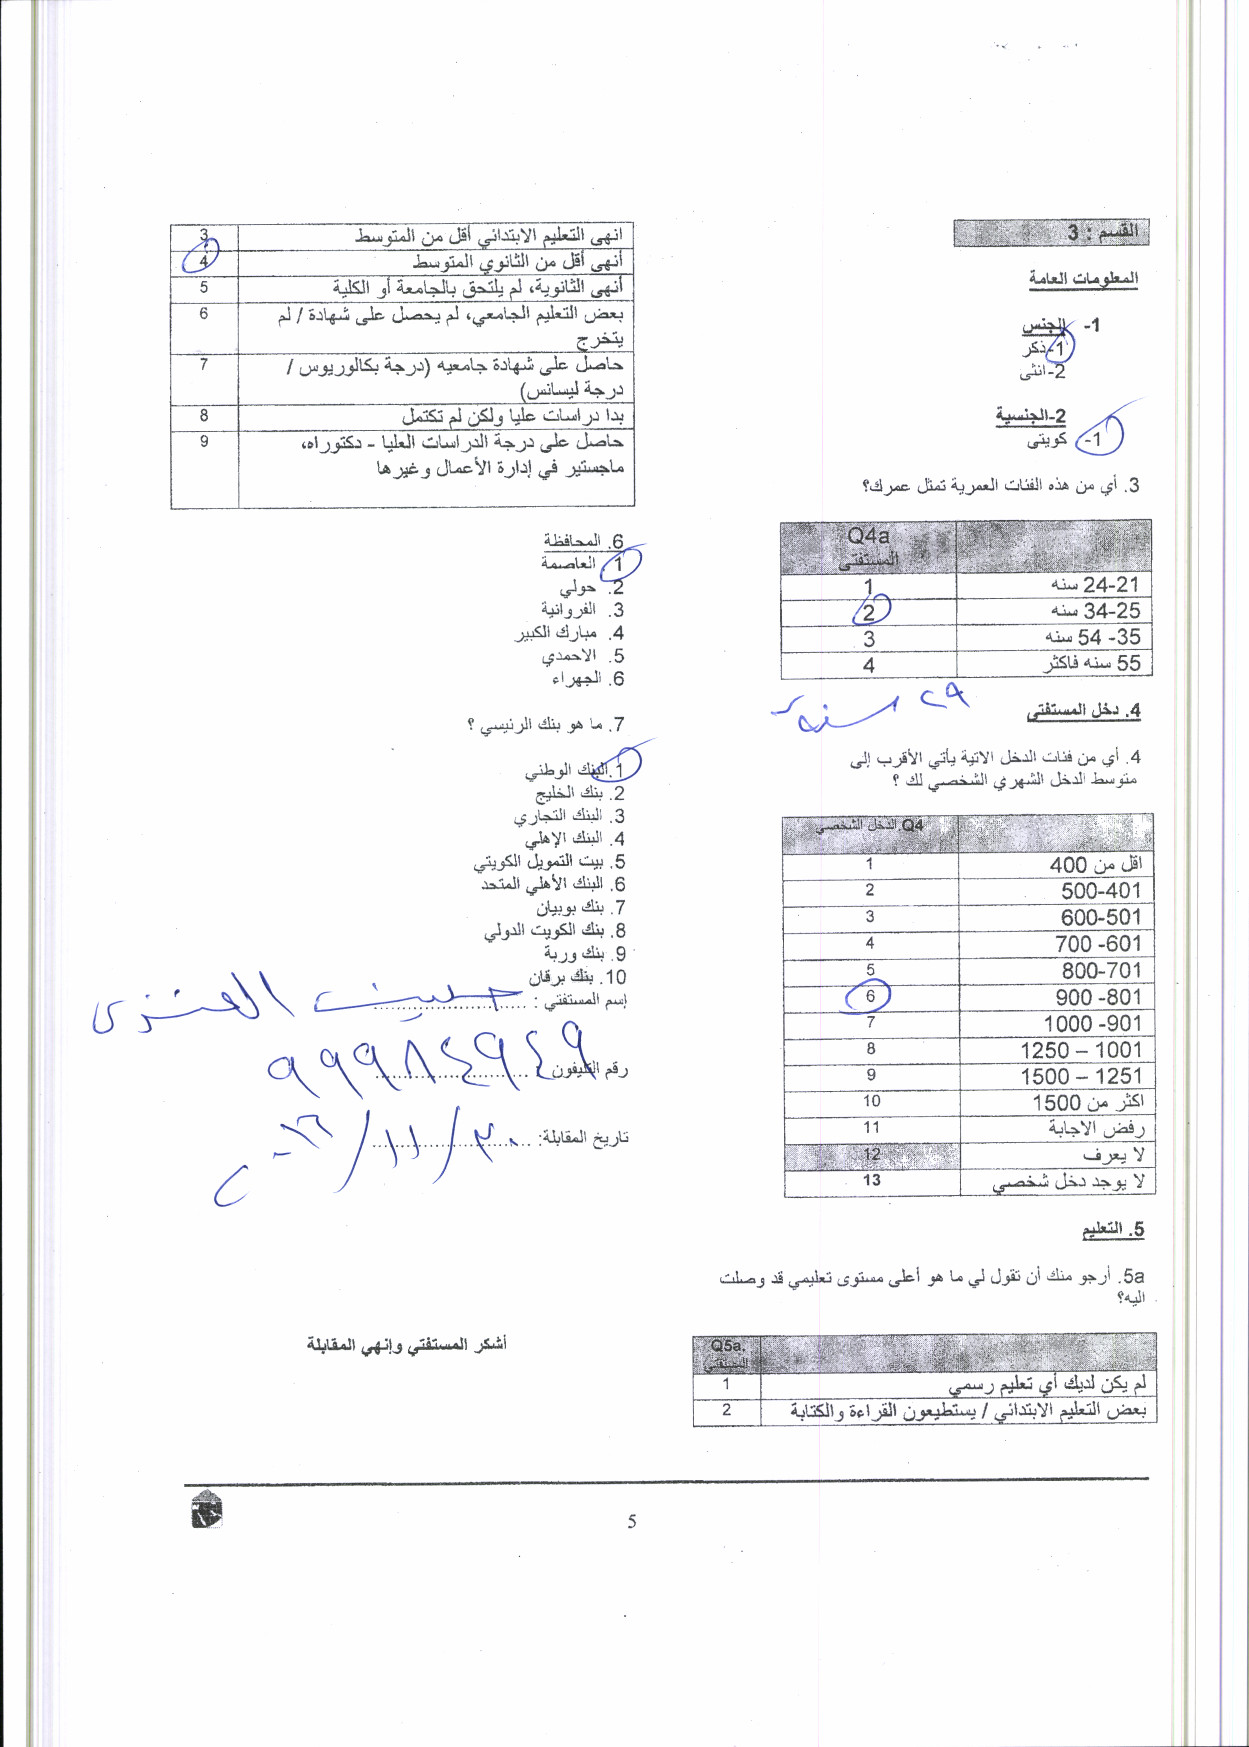 القسم : 3
المعلومات العامة
1- الجنس
1-ذكر
2-انثى
2-الجنسية
1- كويتى
3. أي من هذه الفئات العمرية تمثل عمرك؟
Q4a
المستفتى
24-21 سنه 1
34-25 سنه 2
35- 54 سنه 3
55 سنه فاكثر 4
٢٩ سنه
4. دخل المستفتى
4. أي من فئات الدخل الاتية يأتي الأقرب إلى
متوسط الدخل الشهري الشخصي لك ؟
Q4. الدخل الشخصي
اقل من 400 1
500-401 2
600-501 3
700 -601 4
800-701 5
900 -801 6
1000 -901 7
1250 – 1001 8
1500 – 1251 9
اكثر من 1500 10
رفض الاجابة 11
لا يعرف 12
لا يوجد دخل شخصي 13
5. التعليم
5a. أرجو منك أن تقول لي ما هو أعلى مستوى تعليمي قد وصلت
اليه؟
Q5a.
المستفتي
لم يكن لديك أي تعليم رسمي 1
بعض التعليم الابتدائي / يستطيعون القراءة والكتابة 2
انهى التعليم الابتدائي أقل من المتوسط 3
أنهى أقل من الثانوي المتوسط 4
أنهى الثانوية، لم يلتحق بالجامعة أو الكلية 5
بعض التعليم الجامعي، لم يحصل على شهادة / لم 6
يتخرج
حاصل على شهادة جامعيه (درجة بكالوريوس / 7
درجة ليسانس)
بدا دراسات عليا ولكن لم تكتمل 8
حاصل على درجة الدراسات العليا - دكتوراه، 9
ماجستير في إدارة الأعمال وغيرها
6. المحافظة
1. العاصمة
2. حولي
3. الفروانية
4. مبارك الكبير
5. الاحمدي
6. الجهراء
7. ما هو بنك الرئيسي ؟
1. البنك الوطني
2. بنك الخليج
3. البنك التجاري
4. البنك الإهلي
5. بيت التمويل الكويتي
6. البنك الأهلي المتحد
7. بنك بوبيان
8. بنك الكويت الدولي
9. بنك وربة
10. بنك برقان
إسم المستفتي : حسين العنزى
رقم التليفون : ٩٩٩٨٤٩٤٩
تاريخ المقابلة: ٣٠/١١/٢٠١٦
أشكر المستفتي وإنهي المقابلة
5